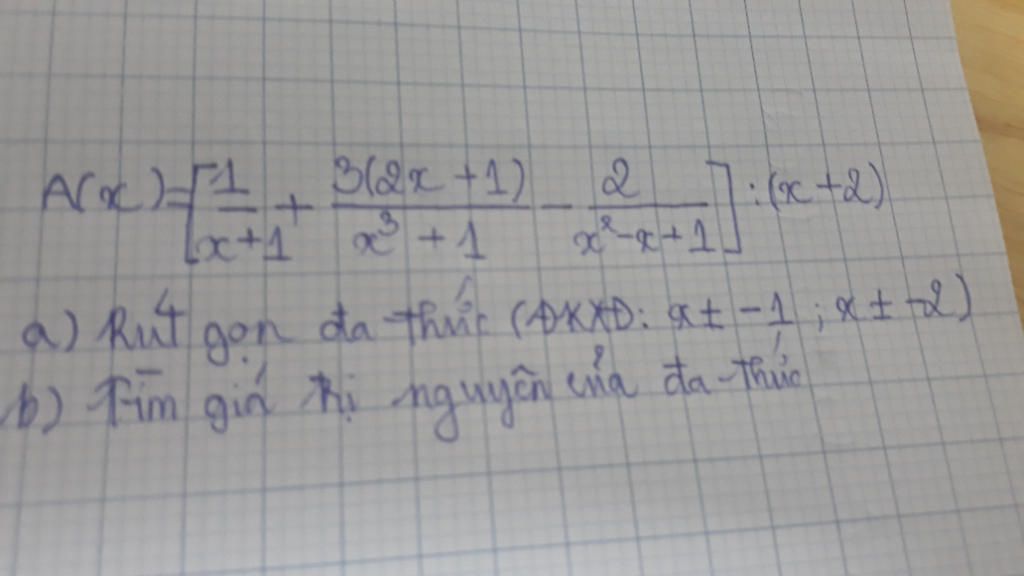 A(x)=[1/(x+1) + 3(2x+1)/(x³+1) − 2/(x²−x+1)]:(x+2)
a) Rút gọn đa thức (ĐKXĐ: x ± -1 ; x ± -2)
b) Tìm giá trị nguyên của đa thức